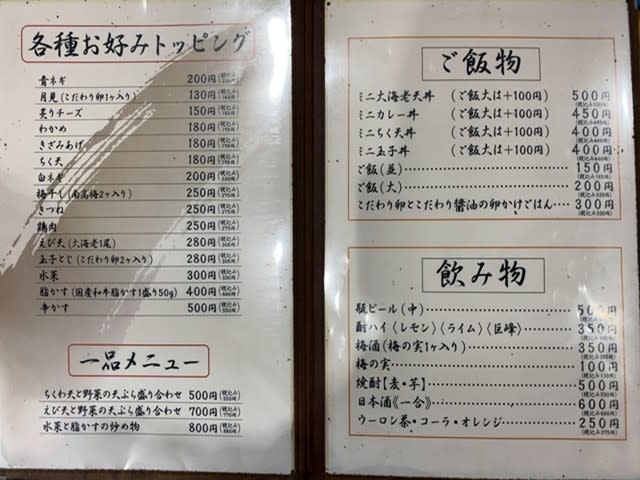 各種お好みトッピング
青ネギ 200円(税込み220円)
月見(こだわり卵1ヶ入り) 130円
炙りチーズ 150円(税込み165円)
わかめ 180円(税込み198円)
きざみあげ 180円(税込み198円)
ちく天 180円(税込み198円)
白ネギ 200円(税込み220円)
梅干し(南高梅2ヶ入り) 250円(税込み275円)
きつね 250円(税込み275円)
鶏肉 250円(税込み275円)
えび天(大海老1尾) 280円(税込み308円)
玉子とじ(こだわり卵2ヶ入り) 280円(税込み308円)
水菜 300円(税込み330円)
脂かす(国産和牛脂かす1盛り50g) 400円(税込み440円)
辛かす 500円(税込み550円)
一品メニュー
ちくわ天と野菜の天ぷら盛り合わせ 500円(税込み550円)
えび天と野菜の天ぷら盛り合わせ 700円(税込み770円)
水菜と脂かすの炒め物 800円(税込み880円)
ご飯物
ミニ大海老天丼 (ご飯大は+100円) 500円
(税込み550円)
ミニカレー丼 (ご飯大は+100円) 450円
ミニちく天丼 (ご飯大は+100円) 400円
(税込み440円)
ミニ玉子丼 (ご飯大は+100円) 400円
(税込み440円)
ご飯(並) 150円
(税込み165円)
ご飯(大) 200円
(税込み220円)
こだわり卵とこだわり醤油の卵かけごはん 300円
(税込み330円)
飲み物
瓶ビール(中) 500円
酎ハイ〈レモン〉〈ライム〉〈巨峰〉 350円
梅酒(梅の実1ヶ入り) 350円
梅の実 100円
(税込み110円)
焼酎【麦・芋】 500円
(税込み550円)
日本酒《一合》 600円
(税込み660円)
ウーロン茶・コーラ・オレンジ 250円
(税込み275円)